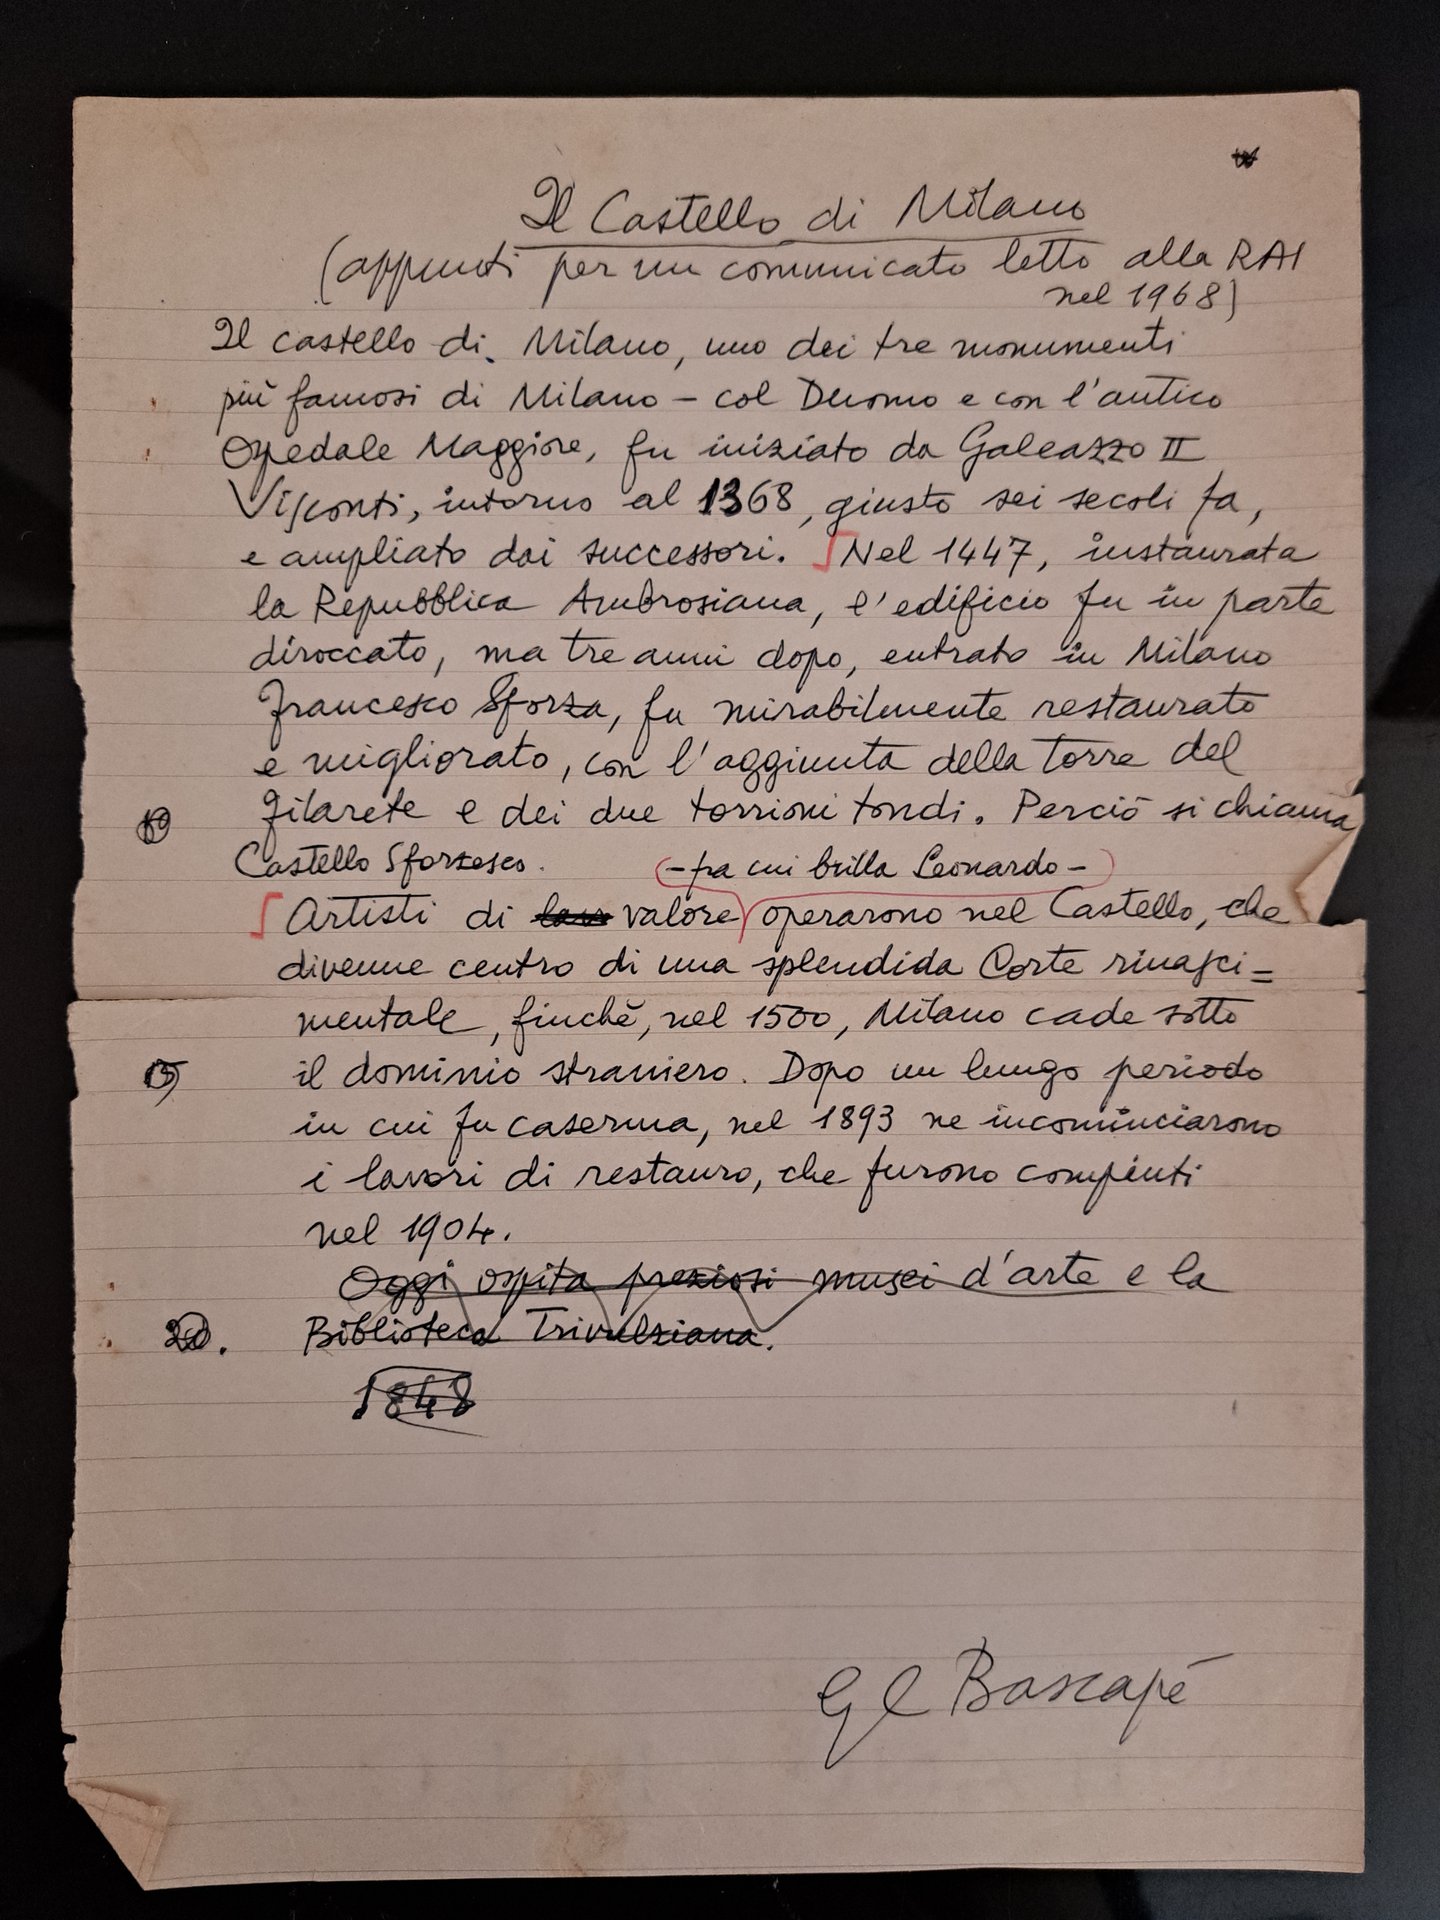 Il Castello di Milano
(appunti per un comunicato letto alla RAI
nel 1968)
Il castello di Milano, uno dei tre monumenti
più famosi di Milano – col Duomo e con l'antico
Ospedale Maggiore, fu iniziato da Galeazzo II
Visconti, intorno al 1368, giusto sei secoli fa,
e ampliato dai successori. Nel 1447, instaurata
la Repubblica Ambrosiana, l'edificio fu in parte
diroccato, ma tre anni dopo, entrato in Milano
Francesco Sforza, fu mirabilmente restaurato
e migliorato, con l'aggiunta della torre del
Filarete e dei due torrioni tondi. Perciò si chiama
Castello Sforzesco.
– fra cui brilla Leonardo –
Artisti di valore operarono nel Castello, che
divenne centro di una splendida Corte rinasci=
mentale, finchè, nel 1500, Milano cade sotto
15
il dominio straniero. Dopo un lungo periodo
in cui fu caserma, nel 1893 ne incominciarono
i lavori di restauro, che furono compiuti
nel 1904.
Oggi ospita preziosi musei d'arte e la
20. Biblioteca Trivulziana.
1848
G C Bascapè